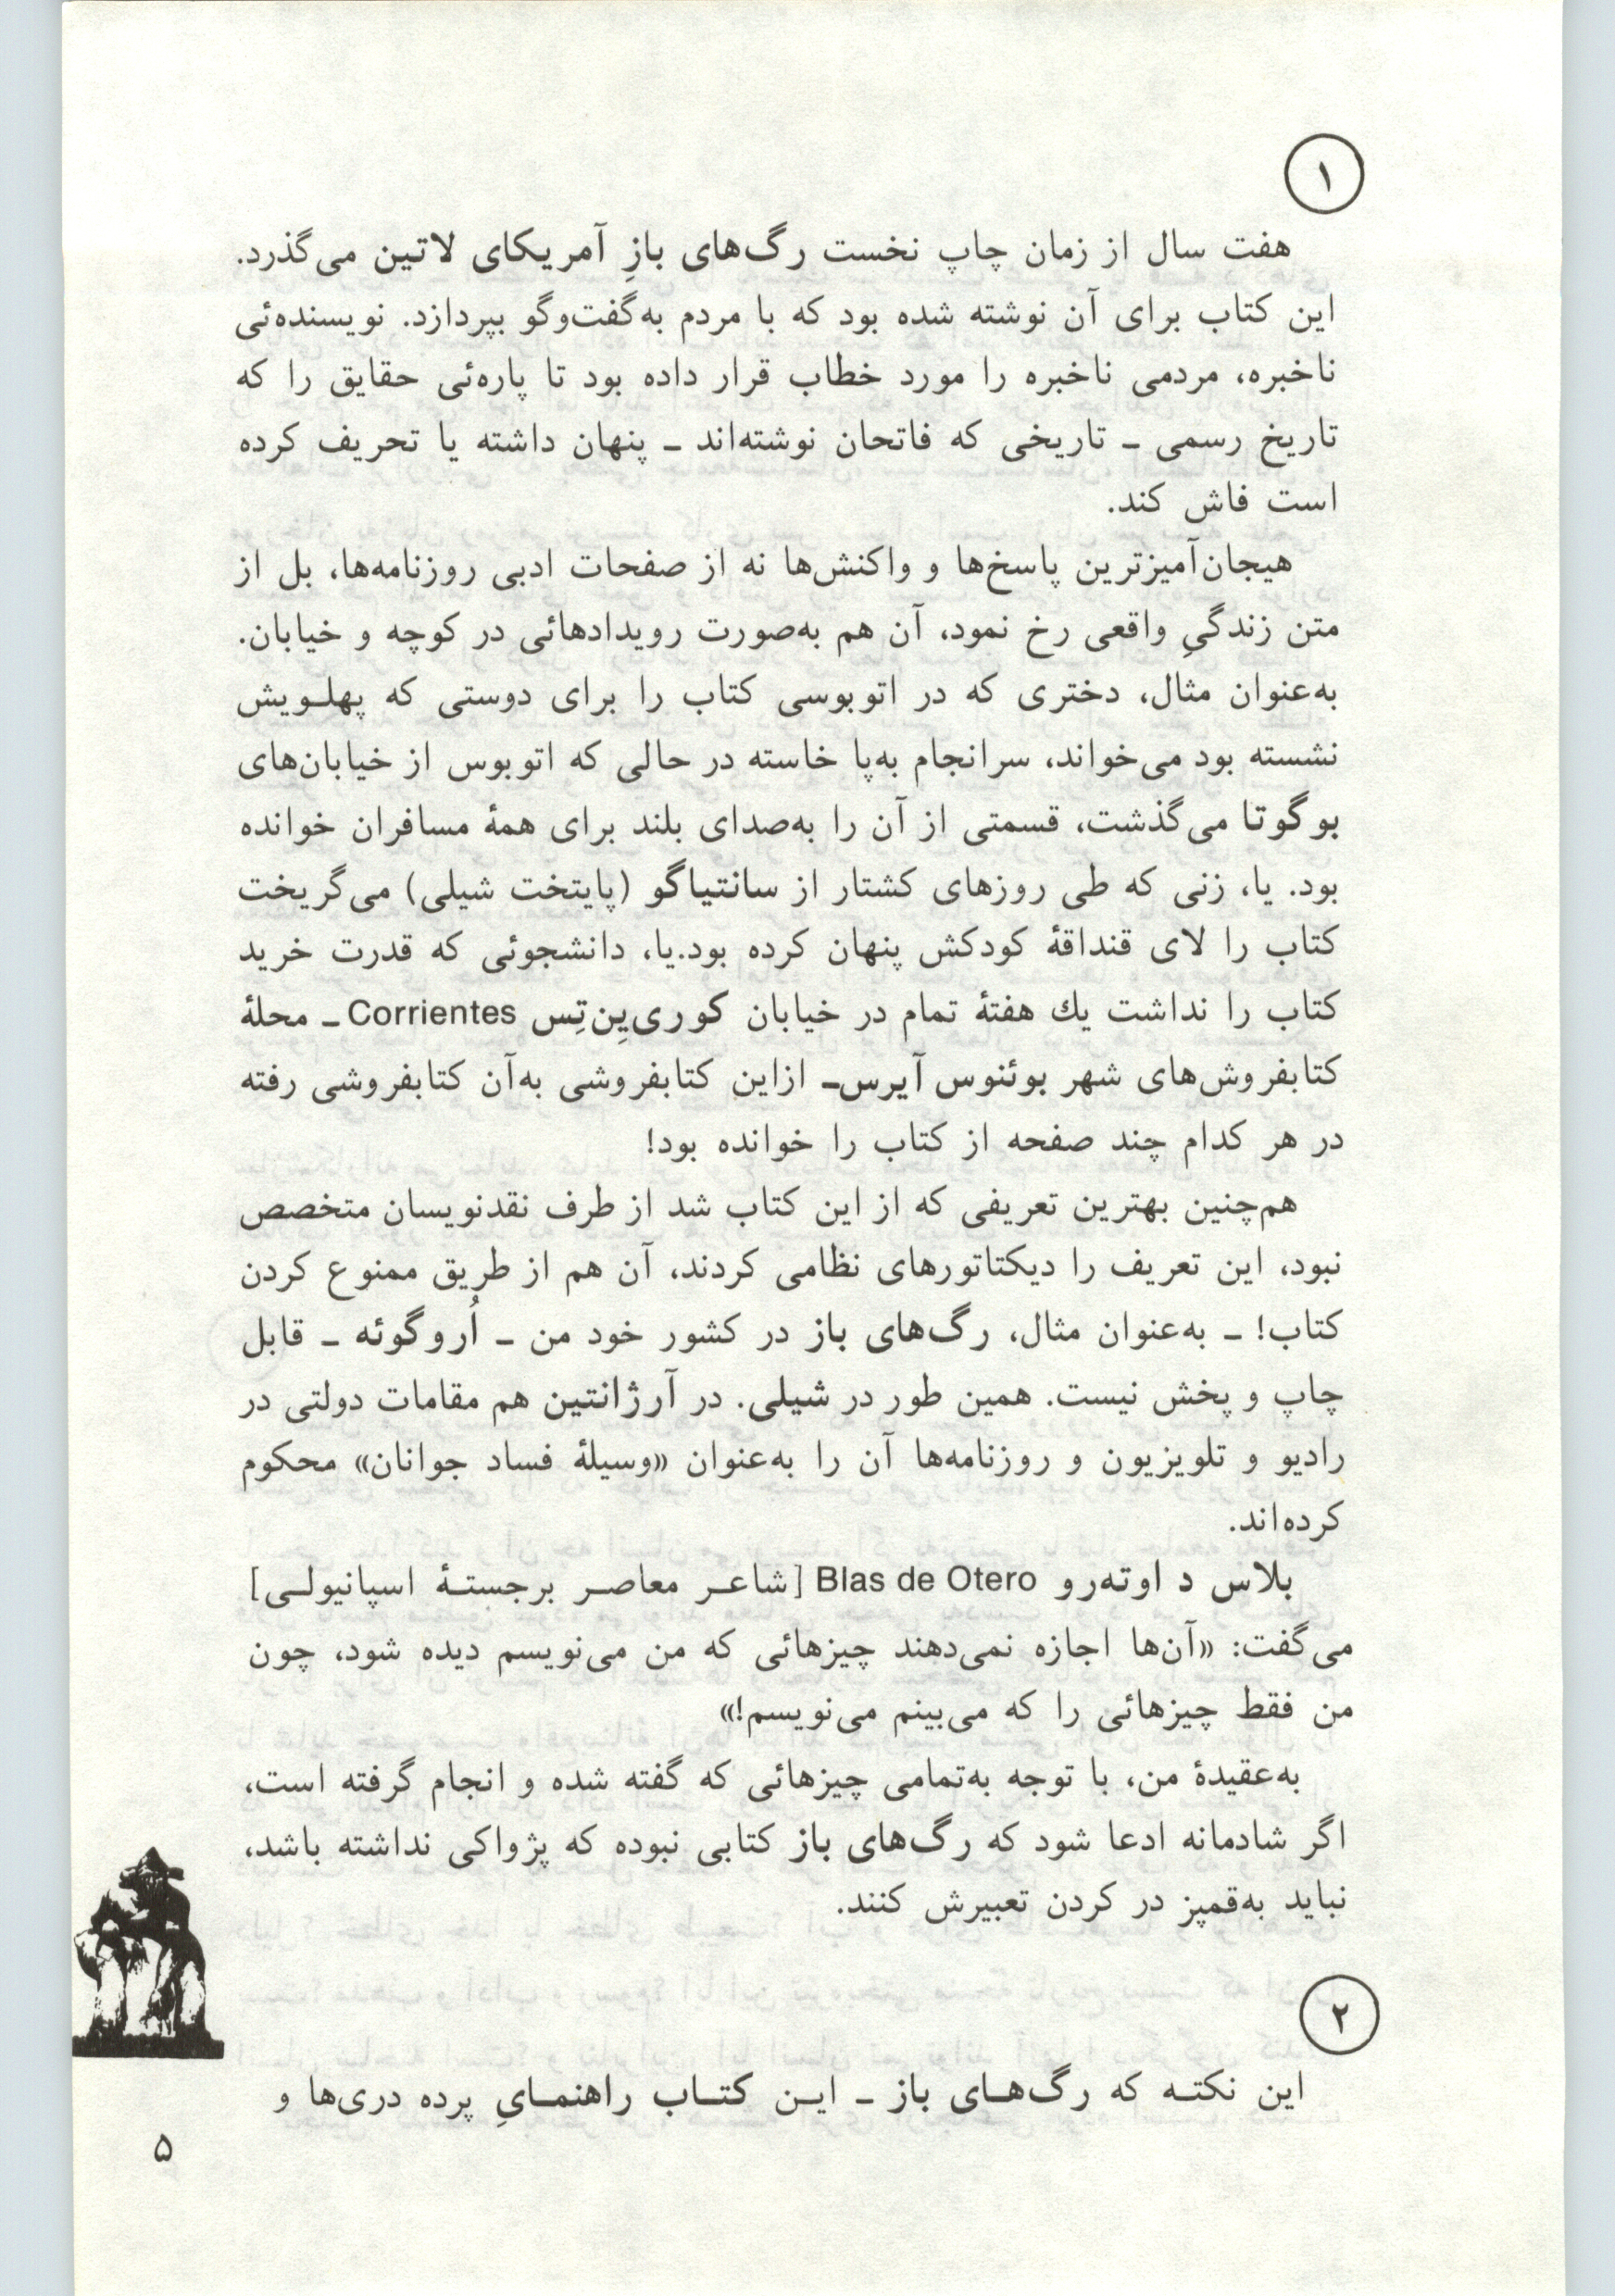 ۱
هفت سال از زمان چاپ نخست رگ‌های بازِ آمریکای لاتین می‌گذرد.
این کتاب برای آن نوشته شده بود که با مردم به‌گفت‌وگو بپردازد. نویسنده‌ئی
ناخبره، مردمی ناخبره را مورد خطاب قرار داده بود تا پاره‌ئی حقایق را که
تاریخ رسمی ـ تاریخی که فاتحان نوشته‌اند ـ پنهان داشته یا تحریف کرده
است فاش کند.
هیجان‌آمیزترین پاسخ‌ها و واکنش‌ها نه از صفحات ادبی روزنامه‌ها، بل از
متن زندگیِ واقعی رخ نمود، آن هم به‌صورت رویدادهائی در کوچه و خیابان.
به‌عنوان مثال، دختری که در اتوبوسی کتاب را برای دوستی که پهلـویش
نشسته بود می‌خواند، سرانجام به‌پا خاسته در حالی که اتوبوس از خیابان‌های
بوگوتا می‌گذشت، قسمتی از آن را به‌صدای بلند برای همهٔ مسافران خوانده
بود. یا، زنی که طی روزهای کشتار از سانتیاگو (پایتخت شیلی) می‌گریخت
کتاب را لای قنداقهٔ کودکش پنهان کرده بود.یا، دانشجوئی که قدرت خرید
کتاب را نداشت یك هفتهٔ تمام در خیابان کوری‌یِن‌تِس Corrientes ـ محلهٔ
کتابفروش‌های شهر بوئنوس آیرس‌ـ ازاین کتابفروشی به‌آن کتابفروشی رفته
در هر کدام چند صفحه از کتاب را خوانده بود!
هم‌چنین بهترین تعریفی که از این کتاب شد از طرف نقدنویسان متخصص
نبود، این تعریف را دیکتاتورهای نظامی کردند، آن هم از طریق ممنوع کردن
کتاب! ـ به‌عنوان مثال، رگ‌های باز در کشور خود من ـ اُروگوئه ـ قابل
چاپ و پخش نیست. همین طور در شیلی. در آرژانتین هم مقامات دولتی در
رادیو و تلویزیون و روزنامه‌ها آن را به‌عنوان «وسیلهٔ فساد جوانان» محکوم
کرده‌اند.
بلاس د اوته‌رو Blas de Otero [شاعـر معاصـر برجستـهٔ اسپانیولـی]
می‌گفت: «آن‌ها اجازه نمی‌دهند چیزهائی که من می‌نویسم دیده شود، چون
من فقط چیزهائی را که می‌بینم می‌نویسم!»
به‌عقیدهٔ من، با توجه به‌تمامی چیزهائی که گفته شده و انجام گرفته است،
اگر شادمانه ادعا شود که رگ‌های باز کتابی نبوده که پژواکی نداشته باشد،
نباید به‌قمپز در کردن تعبیرش کنند.
۲
این نکتـه که رگ‌هـای باز ـ ایـن کتـاب راهنمـایِ پرده دری‌ها و
۵